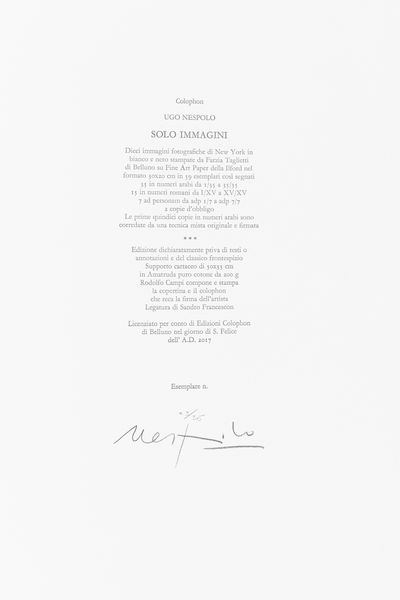 Colophon
UGO NESPOLO
SOLO IMMAGINI
Dieci immagini fotografiche di New York in
bianco e nero stampate da Fuzia Taglietti
di Belluno su Fine Art Paper della Ilford nel
formato 30x20 cm in 59 esemplari così segnati
35 in numeri arabi da 1/35 a 35/35
15 in numeri romani da I/XV a XV/XV
7 ad personam da adp 1/7 a adp 7/7
2 copie d'obbligo
Le prime quindici copie in numeri arabi sono
corredate da una tecnica mista originale e firmata
***
Edizione dichiaratamente priva di testi o
annotazioni e del classico frontespizio
Supporto cartaceo di 50x35 cm
in Amatruda puro cotone da 200 g
Rodolfo Campi compone e stampa
la copertina e il colophon
che reca la firma dell'artista
Legatura di Sandro Francescon
Licenziato per conto di Edizioni Colophon
di Belluno nel giorno di S. Felice
dell' A.D. 2017
Esemplare n.
Nespolo